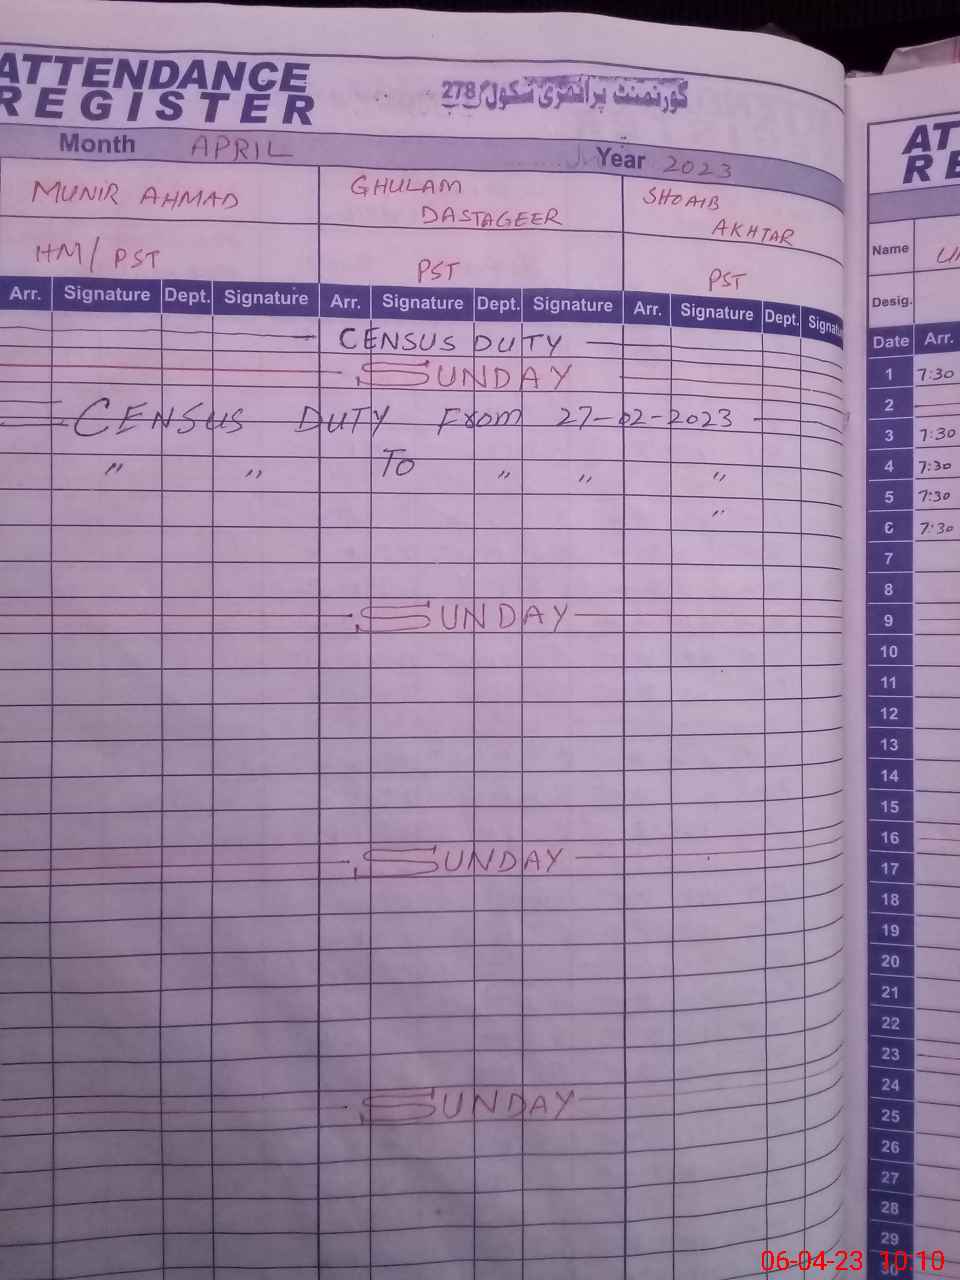 ATTENDANCE
REGISTER
گورنمنٹ پرائمری سکول
278
Month APRIL Year 2023
MUNIR AHMAD GHULAM DASTAGEER SHOAIB AKHTAR
HM/PST PST PST
Arr. Signature Dept. Signature Arr. Signature Dept. Signature Arr. Signature Dept.
CENSUS DUTY
SUNDAY
CENSUS DUTY From 27-02-2023
" " To " " "
"
SUNDAY
SUNDAY
SUNDAY
Name
Desig.
Date Arr.
1 7:30
2
3 7:30
4 7:30
5 7:30
6 7:30
7
8
9
10
11
12
13
14
15
16
17
18
19
20
21
22
23
24
25
26
27
28
29
30
06-04-23 10:10